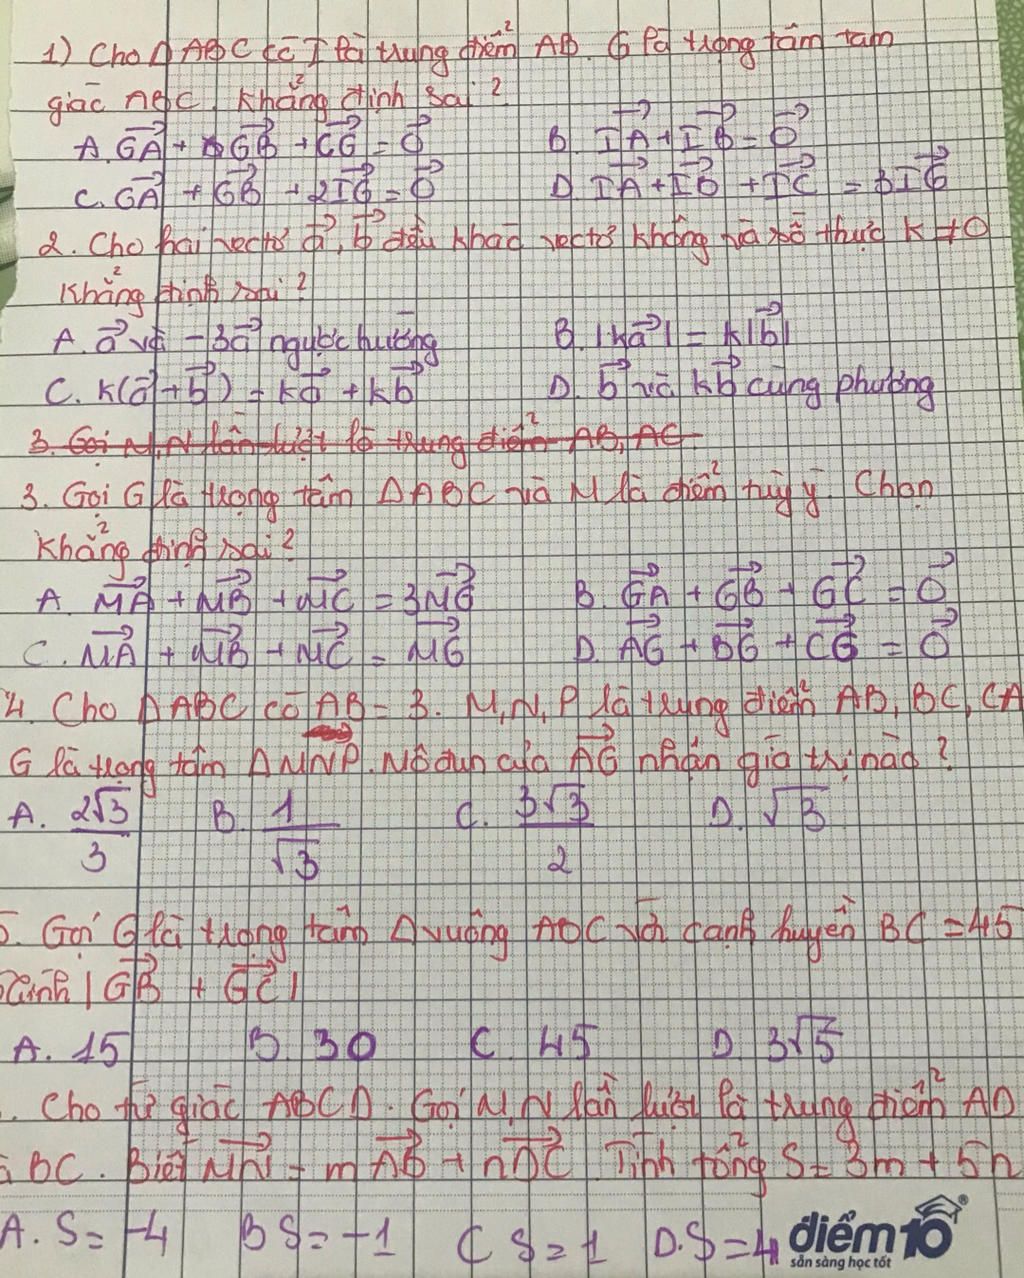 1) Cho Δ ABC có I là trung điểm AB. G là trọng tâm tam
giác ABC. Khẳng định sai?
A. \overrightarrow{GA} + \overrightarrow{GB} + \overrightarrow{CG} = \overrightarrow{0} B. \overrightarrow{IA} + \overrightarrow{IB} = \overrightarrow{0}
C. \overrightarrow{GA} + \overrightarrow{GB} + 2\overrightarrow{IG} = \overrightarrow{0} D. \overrightarrow{IA} + \overrightarrow{IB} + \overrightarrow{IC} = 3\overrightarrow{IG}
2. Cho hai vectơ \overrightarrow{a}, \overrightarrow{b} đều khác vectơ không và số thực k ≠ 0
Khẳng định sai?
A. \overrightarrow{a} và -3\overrightarrow{a} ngược hướng B. |k\overrightarrow{a}| = k|\overrightarrow{b}|
C. k(\overrightarrow{a} + \overrightarrow{b}) = k\overrightarrow{a} + k\overrightarrow{b} D. \overrightarrow{b} và k\overrightarrow{b} cùng phương
3. Gọi M, N lần lượt là trung điểm AB, AC
3. Gọi G là trọng tâm ΔABC và M là điểm tùy ý. Chọn
khẳng định sai?
A. \overrightarrow{MA} + \overrightarrow{MB} + \overrightarrow{MC} = 3\overrightarrow{MG} B. \overrightarrow{GA} + \overrightarrow{GB} + \overrightarrow{GC} = \overrightarrow{0}
C. \overrightarrow{MA} + \overrightarrow{MB} + \overrightarrow{MC} = \overrightarrow{MG} D. \overrightarrow{AG} + \overrightarrow{BG} + \overrightarrow{CG} = \overrightarrow{0}
4. Cho ΔABC có AB = 3. M, N, P là trung điểm AB, BC, CA
G là trọng tâm ΔMNP. Môđun của \overrightarrow{AG} nhận giá trị nào?
A. \frac{2\sqrt{3}}{3} B. \frac{1}{\sqrt{3}} C. \frac{3\sqrt{3}}{2} D. \sqrt{3}
5. Gọi G là trọng tâm Δ vuông ABC với cạnh huyền BC = 45
Tính |\overrightarrow{GB} + \overrightarrow{GC}|
A. 15 B. 30 C. 45 D. 3\sqrt{5}
. Cho tứ giác ABCD. Gọi M, N lần lượt là trung điểm AD
BC. Biết \overrightarrow{MN} = m\overrightarrow{AB} + n\overrightarrow{DC}. Tính tổng S = 3m + 5n
A. S = -4 B S = -1 C S = 1 D. S = 4
điểm10®
sẵn sàng học tốt